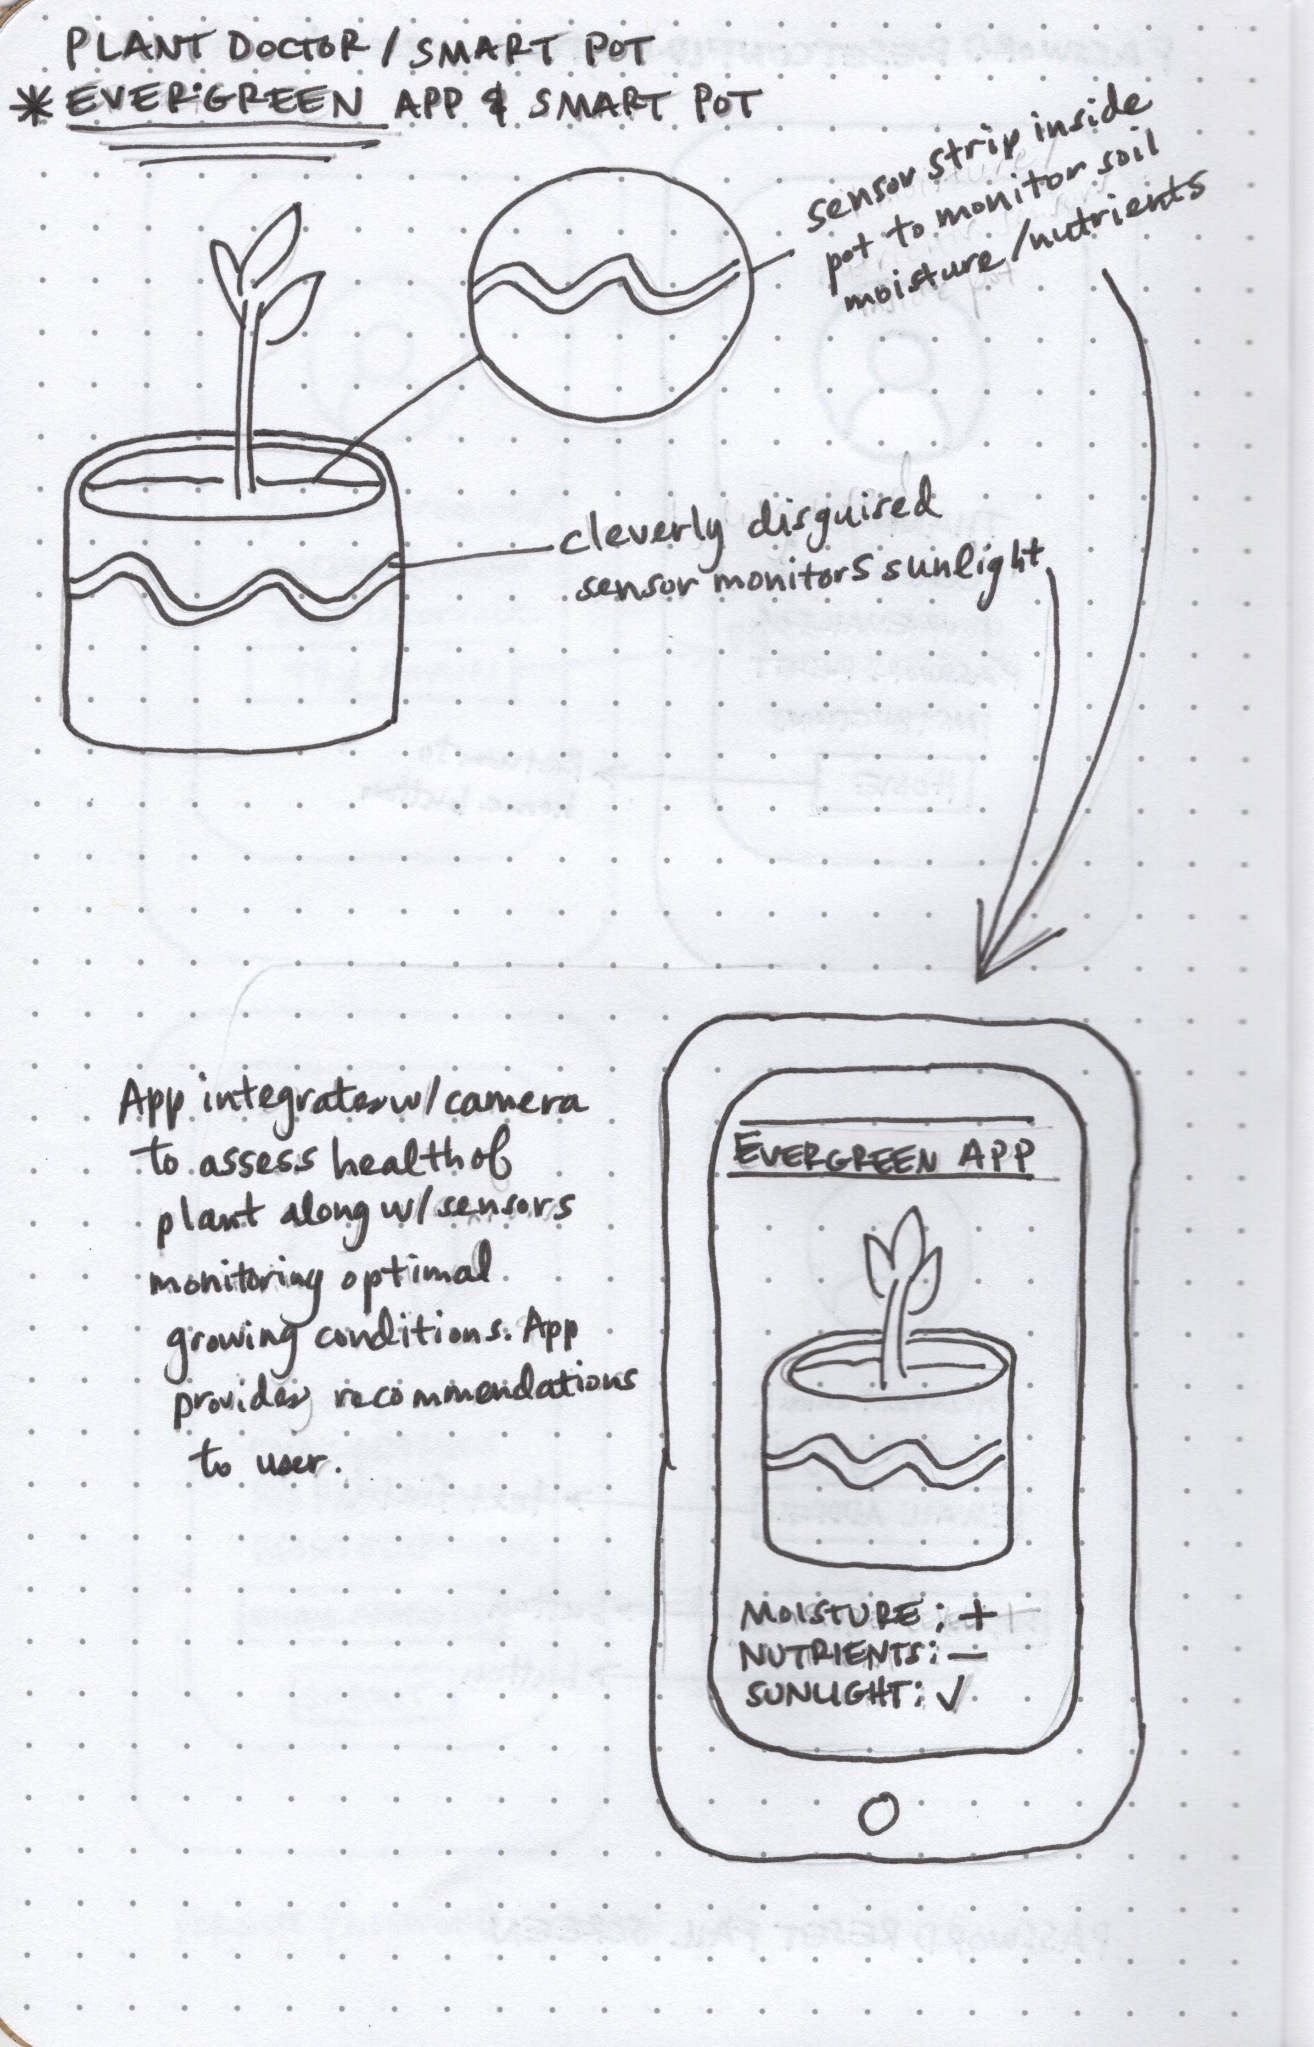 PLANT DOCTOR / SMART POT
* EVERGREEN APP & SMART POT
sensor strip inside
pot to monitor soil
moisture/nutrients
cleverly disguised
sensor monitors sunlight
App integrates w/ camera
to assess health of
plant along w/ sensors
monitoring optimal
growing conditions. App
provides recommendations
to user.
EVERGREEN APP
MOISTURE: +
NUTRIENTS: —
SUNLIGHT: ✓